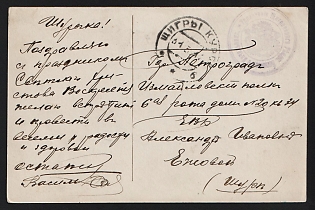 Шурочка!
Поздравляю
с праздником
Святаго Хри-
стова Воскресенія
желаю встретить
и провести въ
веселіи и радости
и здоровьи
остаюсь
ЩИГРЫ КУРС
Гор. Петроградъ
Измайловскій полкъ
6ая рота домъ № 20 кв 74
ЕВБ
Александре Ивановне
Ежовой
(Шуре)